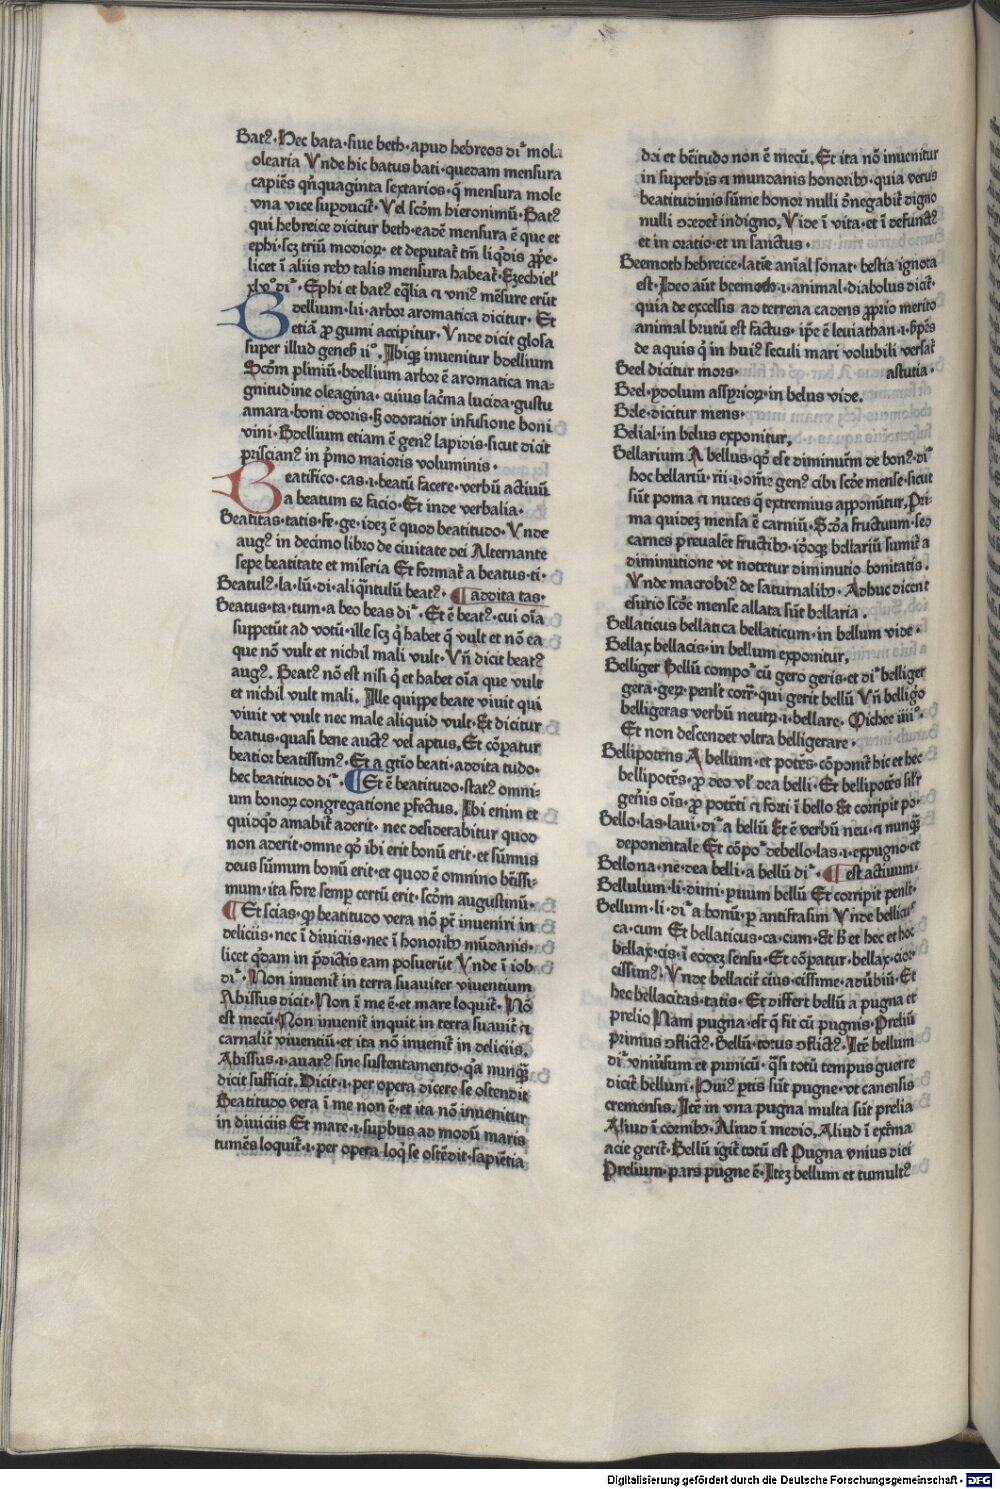 Batꝰ·Hec bata·siue beth·apud hebreos dr̃ mola
olearia Vnde hic batus bati·quedam mensura
capiẽs qñquaginta sextarios·q̃ mensura mole
vna vice supducit᷑·Vel scđm hieronimũ·Batꝰ
qui hebreice dicitur beth·eadẽ mensura ẽ que et
ephi·scꝫ triũ modioꝝ·et deputat᷑ tm̃ liqͥdis ꝓpͤ·
licet ĩ aliis rebꝫ talis mensura habeat᷑·Ezechiel̕
xlvͦ dr̃·Ephi et batꝰ eq̃lia ⁊ vniꝰ mẽsure erũt
Bdellium·lii·arbor aromatica dicitur·Et
etiã ꝓ gumi accipitur·Vnde dicit glosa
super illud geneẜ iiͦ·Ibiqꝫ inuenitur bdellium
Scđm pliniũ·bdellium arbor ẽ aromatica ma⸗
gnitudine oleagina·cuius lacͥma lucida·gustu
amara·boni odoris·ẜ odoratior infusione boni
vini·Bdellium etiam ẽ genꝰ lapidis·sicut dicit
priscianꝰ in pͥmo maioris voluminis·
Beatifico·cas·ı·beatũ facere·verbũ actiuũ
a beatum et facio·Et inde verbalia·
Beatitas·tatis·fe·ge·ideʒ ẽ quod beatitudo·Vnde
augꝰ in decimo libro de ciuitate dei Alternante
sepe beatitate et miseria Et format᷑ a beatus·ti·
Beatulꝰ·la·lũ·di·aliqͣntulũ beatꝰ· ¶ addita tas·
Beatus·ta·tum·a beo beas dr̃·Et ẽ beatꝰ·cui oĩa
suppetũt ad votũ·ille scꝫ qͥ habet qͦ vult et nõ ea
que nõ vult et nichil mali vult·Vñ dicit beatꝰ
augꝰ. Beatꝰ nõ est nisi qͥ et habet oĩa que vult
et nichil vult mali. Ille quippe beate viuit qui
viuit vt vult nec male aliquid vult·Et dicitur
beatus·quasi bene auctꝰ vel aptus, Et cõpatur
beatior beatissimꝰ·Et a gtĩo beati·addita tudo·
hec beatitudo dr̃· ¶ Et ẽ beatitudo·statꝰ omni⸗
um bonoꝝ congregatione ꝑfectus. Ibi enim et
quidqͥd amabit᷑ aderit·nec desiderabitur quod
non aderit·omne qđ ibi erit bonũ erit·et sũmus
deus sũmum bonũ erit·et quod ẽ omnino bt̃issi⸗
mum·ita fore semp certũ erit·scđm augustinũ·
¶ Et scias·ꝙ beatitudo vera nõ pt̃ inueniri in
deliciis·nec ĩ diuiciis·nec ĩ honoribꝫ mũdanis·
licet qͥdam in p̃dictis eam posuerũt Vnde ĩ iob
dr̃·Non inuenit᷑ in terra suauiter viuentium
Abissus dicit·Non ĩ me ẽ·et mare loquit᷑·Nõ
est mecũ·Non inuenit᷑ inquit in terra suauit᷑ ⁊
carnalit᷑ viuentiũ·et ita nõ inuenit᷑ in deliciis.
Abissus·ı·auarꝰ sine sustentamento·qͥa nunqͣꝫ
dicit sufficit. Dicit·ı·per opera dicere se ostendit
Beatitudo vera ĩ me non ẽ·et ita nõ inuenitur
in diuiciis Et mare·ı·supbus ad modũ maris
tumẽs loquit᷑·ı·per opera·loqͥ se ostẽdit·sapiẽtia
dei et bt̃itudo non ẽ mecũ. Et ita nõ inuenitur
in superbis ⁊ mundanis honoribꝫ·quia verus
beatitudinis sũme honor nulli dñegabit᷑ digno
nulli ↄcedet᷑ indigno, Vide ĩ vita·et ĩ defunctꝰ
et in oratio·et in sanctus·
Beemoth hebreice·latĩe anĩal sonat·bestia ignota
est·Ideo aũt beemoth·ı·animal·diabolus dicit᷑·
quia de excelsis ad terrena cadens ꝓprio merito
animal brutũ est factus·ipẽ ẽ leuiathan·ı·ẜpẽs
de aquis qͥ in huiꝰ seculi mari volubili versat᷑
Beel dicitur mors· astutia·
Beel·ydolum assyrioꝝ·in belus vide.
Bele·dicitur mens·
Belial·in belus exponitur,
Bellarium A bellus·qđ est diminutũ de bonꝰ·dr̃
hoc bellariũ·rii·ı·om̃e genꝰ cibi scđe mense·sicut
sũt poma ⁊ nuces q̃ extremius apponũtur, Pri⸗
ma quideʒ mensa ẽ carniũ·Scđa fructuum·sed
carnes p̃ualẽt fructibꝫ·iđoqꝫ bellariũ sumit᷑ a
diminutione vt notetur diminutio bonitatis.
Vnde macrobiꝰ de saturnalibꝫ·Adhuc dicent
esurio scđe mense allata sũt bellaria.
Bellaticus bellatica bellaticum·in bellum vide·
Bellax bellacis·in bellum exponitur,
Belliger Bellũ compoͬ cũ gero geris·et dr̃ belliger
gera·geꝝ·penl̕t corr̃·qui gerit bellũ Vñ belligo
belligeras verbũ neutꝝ·ı·bellare. Michee iiiiͦ.
Et non descendet vltra belligerare·
Bellipotens A bellum·et potẽs·cõponit᷑ hic et hec
bellipotẽs·ꝓ deo vl̕ dea belli·Et bellipotẽs sil̕r
geñis oĩs·ꝓ potẽti ⁊ forti ĩ bello Et corripit po·
Bello·las·laui·dr̃ a bellũ Et ẽ verbũ neu·⁊ nunqͣꝫ
deponentale Et cõpoͬ debello·las·ı·expugno·et
Bellona·ne·dea belli·a bellũ dr̃· ¶ est actiuum·
Bellulum·li·dimi·pruum bellũ Et corripit penl̕t·
Bellum·li·dr̃ a bonũ·ꝑ antifrasim Vnde bellicus
ca·cum Et bellaticus·ca·cum·Et ħ et hec et hoc
bellax·cis·ĩ eodeʒ sensu·Et cõpatur·bellax·cior
cissimꝰ·Vnde bellacit᷑ cius·cissime·adũbiũ·Et
hec bellacitas·tatis·Et differt bellũ a pugna et
prelio Nam pugna·est q̃ fit cũ pugnis·Preliũ
primus ↄflictꝰ·Bellũ·totus ↄflictꝰ·Itẽ bellum
dr̃ vniũsum et punicũ·qͣsi totũ tempus guerre
dicit᷑ bellum·Huiꝰ ptis sũt pugne·vt canensis
cremensis. Itẽ in vna pugna multa sũt prelia
Aliud ĩ cornibꝫ·Aliud ĩ medio, Aliud ĩ ext᷑ma
acie gerit᷑·Bellũ igit᷑ totũ est Pugna vnius diei
Prelium·pars pugne ẽ·Iteʒ bellum et tumultꝰ
Digitalisierung gefördert durch die Deutsche Forschungsgemeinschaft - DFG